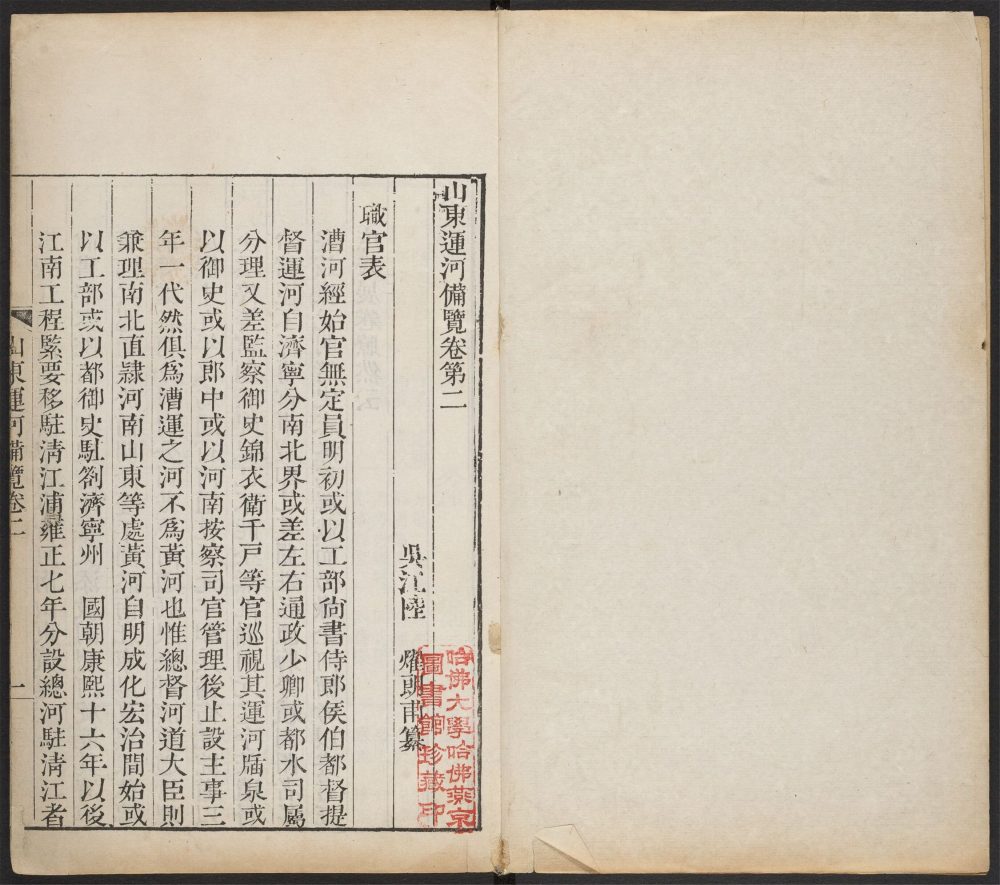 山東運河備覽卷第二
吳江陸 燿朗甫纂
職官表
漕河經始官無定員明初或以工部尚書侍郎侯伯都督提
督運河自濟寧分南北界或差左右通政少卿或都水司屬
分理又差監察御史錦衣衛千戶等官巡視其運河牐泉或
以御史或以郎中或以河南按察司官管理後止設主事三
年一代然俱爲漕運之河不爲黃河也惟總督河道大臣則
兼理南北直隸河南山東等處黃河自明成化宏治間始或
以工部或以都御史駐劄濟寧州 國朝康熙十六年以後
江南工程緊要移駐淸江浦雍正七年分設總河駐淸江者
山東運河備覽卷二
一
哈佛大學哈佛燕京
圖書館珍藏印